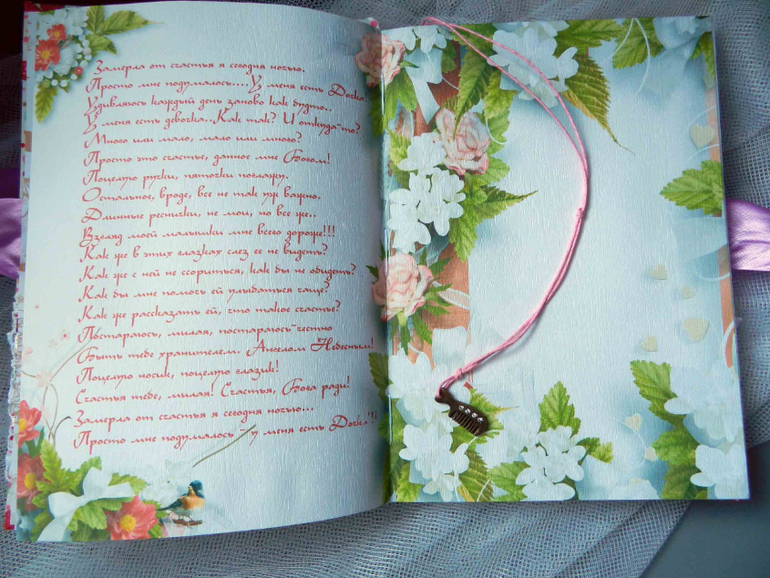 Замерла от счастья я сегодня ночью.
Просто мне подумалось....У меня есть Дочка!
Удивляюсь каждый день заново как будто..
У меня есть девочка..Как так? И откуда-то?
Много или мало, мало или много?
Просто это счастье, данное мне Богом!
Поцелую ручки, пяточки поглажу.
Остальное, вроде, все не так уж важно.
Длинные реснички, не мои, но все же..
Взгляд моей малышки мне всего дороже!!!
Как же в этих глазках слез ее не видеть?
Как же с ней не ссориться, как бы не обидеть?
Как бы мне помочь ей улыбаться чаще?
Как же рассказать ей, что такое счастье?
Постараюсь, милая, постараюсь-честно
Быть тебе хранителем. Ангелом Небесным!
Поцелую носик, поцелую глазик!
Счастья тебе, милая! Счастья, Бога ради!
Замерла от счастья я сегодня ночью...
Просто мне подумалось - у меня есть Дочка!!!